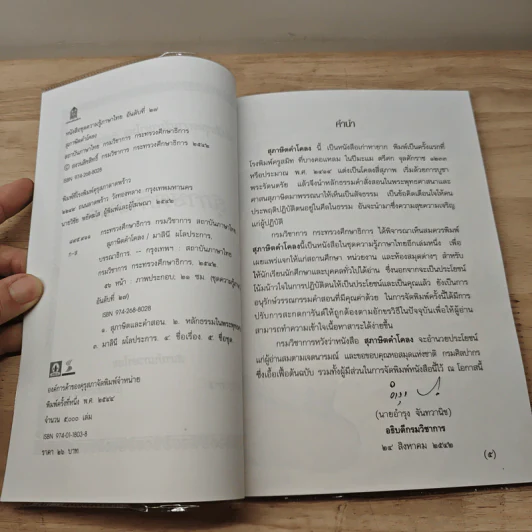 หนังสือชุดความรู้ภาษาไทย อันดับที่ ๒๗
สุภาษิตคำโคลง
สถาบันภาษาไทย กรมวิชาการ กระทรวงศึกษาธิการ
© สงวนลิขสิทธิ์ กรมวิชาการ กระทรวงศึกษาธิการ ๒๕๔๒
ISBN 974-268-8028
พิมพ์ที่โรงพิมพ์คุรุสภาลาดพร้าว
๒๒๔๙ ถนนลาดพร้าว วังทองหลาง กรุงเทพมหานคร
ผู้พิมพ์และผู้โฆษณา ๒๕๔๔
กระทรวงศึกษาธิการ กรมวิชาการ สถาบันภาษาไทย
สุภาษิตคำโคลง / มาลินี ผโลประการ
บรรณาธิการ – กรุงเทพฯ : สถาบันภาษาไทย
กรมวิชาการ กระทรวงศึกษาธิการ. ๒๕๔๒
๔๖ หน้า : ภาพประกอบ; ๒๑ ซม. (ชุดความรู้ภาษาไทย
อันดับที่ ๒๗)
ISBN 974-268-8028
๑. สุภาษิตและคำสอน. ๒. หลักธรรมในพระพุทธ
๓. มาลินี ผโลประการ. ๓. ชื่อเรื่อง ๕. ชื่อชุด.
องค์การค้าของคุรุสภาจัดพิมพ์จำหน่าย
พิมพ์ครั้งที่หนึ่ง พ.ศ. ๒๕๔๔
จำนวน ๕,๐๐๐ เล่ม
ISBN 974-01-1803-8
ราคา ๒๖ บาท
คำนำ
สุภาษิตคำโคลง นี้ เป็นหนังสือเก่าหายาก พิมพ์เป็นครั้งแรกที่
โรงพิมพ์ครูสมิท ที่บางคอแหลม ในปีมะแม ตรีศก จุลศักราช ๑๒๓๓
หรือประมาณ พ.ศ. ๒๔๑๔ แต่งเป็นโคลงสี่สุภาพ เริ่มด้วยการบูชา
พระรัตนตรัย แล้วจึงนำหลักธรรมคำสั่งสอนในพระพุทธศาสนาและ
ศาสนสุภาษิตมาพรรณนาให้เห็นเป็นสัจธรรม เป็นข้อคิดเตือนใจให้คน
ประพฤติปฏิบัติตนอยู่ในศีลในธรรม อันจะนำมาซึ่งความสุขความเจริญ
แก่ผู้ปฏิบัติ
กรมวิชาการ กระทรวงศึกษาธิการ ได้พิจารณาเห็นสมควรพิมพ์
สุภาษิตคำโคลงนี้เป็นหนังสือในชุดความรู้ภาษาไทยอีกเล่มหนึ่ง เพื่อ
เผยแพร่แจกให้แก่สถานศึกษา หน่วยงาน และห้องสมุดต่างๆ สำหรับ
ให้นักเรียนนักศึกษาและบุคคลทั่วไปได้อ่าน ซึ่งนอกจากจะเป็นประโยชน์
โน้มน้าวใจในการปฏิบัติตนให้เป็นประโยชน์และเป็นคุณแล้ว ยังเป็นการ
อนุรักษ์วรรณกรรมคำสอนที่มีคุณค่าด้วย ในการจัดพิมพ์ครั้งนี้ได้มีการ
ปรับการสะกดการันต์ให้ถูกต้องตามอักขรวิธีในปัจจุบันเพื่อให้ผู้อ่าน
สามารถทำความเข้าใจเนื้อหาสาระได้ง่ายขึ้น
กรมวิชาการหวังว่าหนังสือ สุภาษิตคำโคลง จะอำนวยประโยชน์
แก่ผู้อ่านสมตามเจตนารมณ์ และขอขอบคุณหอสมุดแห่งชาติ กรมศิลปากร
ซึ่งเอื้อเฟื้อต้นฉบับ รวมทั้งผู้มีส่วนในการจัดพิมพ์หนังสือนี้ไว้ ณ โอกาสนี้
(นายอำรุง จันทวานิช)
อธิบดีกรมวิชาการ
๒๔ สิงหาคม ๒๕๔๒
(๕)